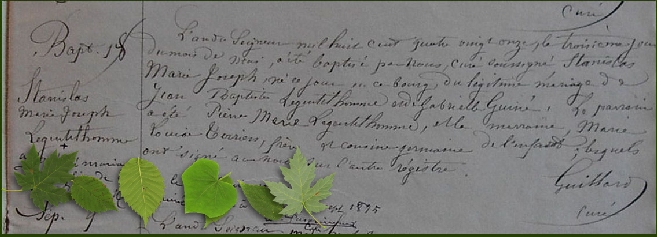 Curé
Bapt. 18
Stanislas
Marie Joseph
Legentilhomme
L'an du Seigneur mil huit cent quatre vingt onze, le troisième jour
du mois de mai, a été baptisé par nous, curé soussigné Stanislas
Marie Joseph né ce jour, en ce bourg, du légitime mariage de
Jean Baptiste Legentilhomme et de Gabrielle Guiné; le parrain
a été Pierre Marie Legentilhomme, et la marraine, Marie
Louise, frère et cousine germaine de l'enfant, lesquels
ont signé avec nous sur l'autre registre.
Guillard
Curé
Sép. 9
1895
L'an du Seigneur